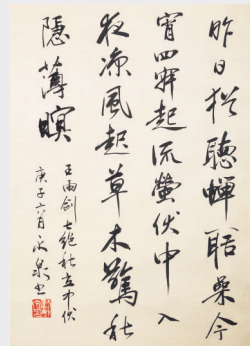 昨日猶聽蟬聒噪今
宵四野起流螢伏中入
夜涼風起草木驚秋
隱薄暝
王雨劍七絕秋立中伏
庚子六月永泉書